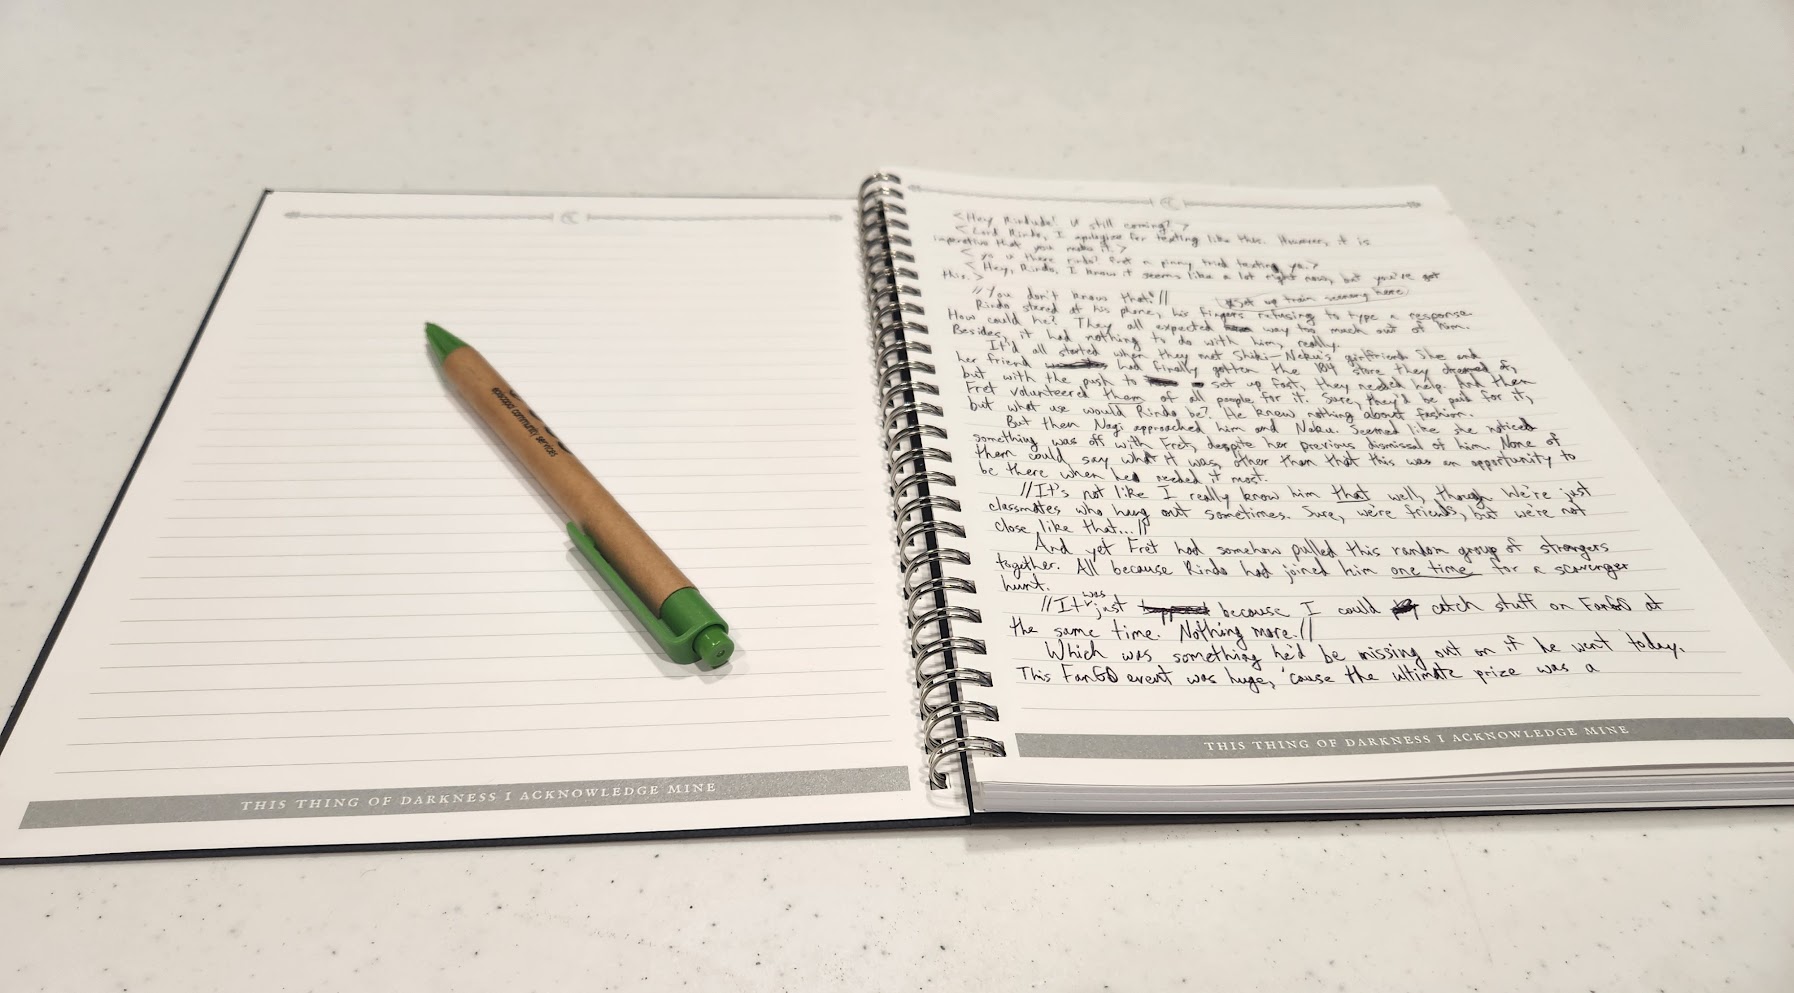 episcopal community services
THIS THING OF DARKNESS I ACKNOWLEDGE MINE
<Hey Rindude! U still coming?>
<Lord Rindo, I apologize for texting like this. However, it is
imperative that you make it.>
<yo u there rindo? got a pinny tried texting ya.>
<Hey, Rindo. I know it seems like a lot right now, but you've got
this.>
//You don't know that!//
*set up train scenery here
Rindo stared at his phone, his fingers refusing to type a response.
How could he? They all expected way too much out of him.
Besides, it had nothing to do with him, really.
It'd all started when they met Shiki-Neku's girlfriend. She and
her friend had finally gotten the 104 store they dreamed of,
but with the push to set up fast, they needed help. And then
Fret volunteered them of all people for it. Sure, they'd be paid for it,
but what use would Rindo be? He knew nothing about fashion.
But then Nagi approached him and Neku. Seemed like she noticed
something was off with Fret, despite her previous dismissal of him. None of
them could say what it was, other than that this was an opportunity to
be there when he needed it most.
//It's not like I really know him that well, though. We're just
classmates who hang out sometimes. Sure, we're friends, but we're not
close like that...//
And yet Fret had somehow pulled this random group of strangers
together. All because Rindo had joined him one time for a scavenger
hunt.
//It was just because I could catch stuff on FanGO at
the same time. Nothing more.//
Which was something he'd be missing out on if he went today.
This FanGO event was huge, 'cause the ultimate prize was a
THIS THING OF DARKNESS I ACKNOWLEDGE MINE